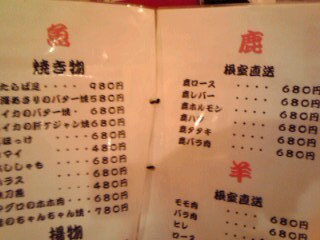 魚
焼き物
たらば足 ‥‥ 980円
海あさりのバター焼 580円
イカのバター焼 ‥ 680円
イカの肝ケジャン焼 680円
ほっけ ‥‥ 680円
マイ ‥‥ 480円
ししゃも ‥‥ 680円
ハラス ‥‥ 480円
680円
グロのホホ肉 ‥‥ 680円
のちゃんちゃん焼 780円
揚物
鹿
根室直送
鹿ロース ‥‥ 680円
鹿レバー ‥‥ 680円
鹿ホルモン ‥‥ 680円
鹿ハツ ‥‥ 680円
鹿タタキ ‥‥ 680円
鹿バラ肉 ‥‥ 680円
羊
根室直送
モモ肉 ‥‥ 680円
バラ肉 ‥‥ 680円
ヒレ ‥‥ 680円
ロース 680円